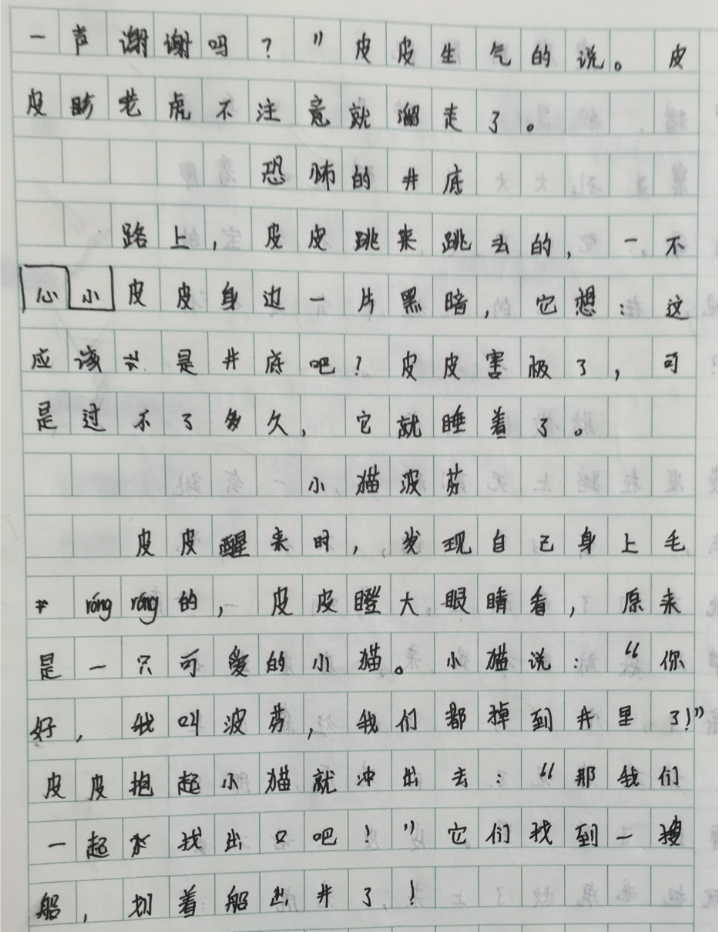 一声谢谢吗？”皮皮生气的说。皮
皮盼老虎不注意就溜走了。
恐怖的井底
路上，皮皮跳来跳去的，一不
心小皮皮身边一片黑暗，它想：这
应该是井底吧？皮皮害极了，可
是过不了多久，它就睡着了。
小猫波芬
皮皮醒来时，发现自己身上毛
róng róng的，皮皮瞪大眼睛看，原来
是一只可爱的小猫。小猫说：“你
好，我叫波芬，我们都掉到井里了！”
皮皮抱起小猫就冲出去：“那我们
一起来找出口吧！”它们找到一艘
船，划着船出井了！